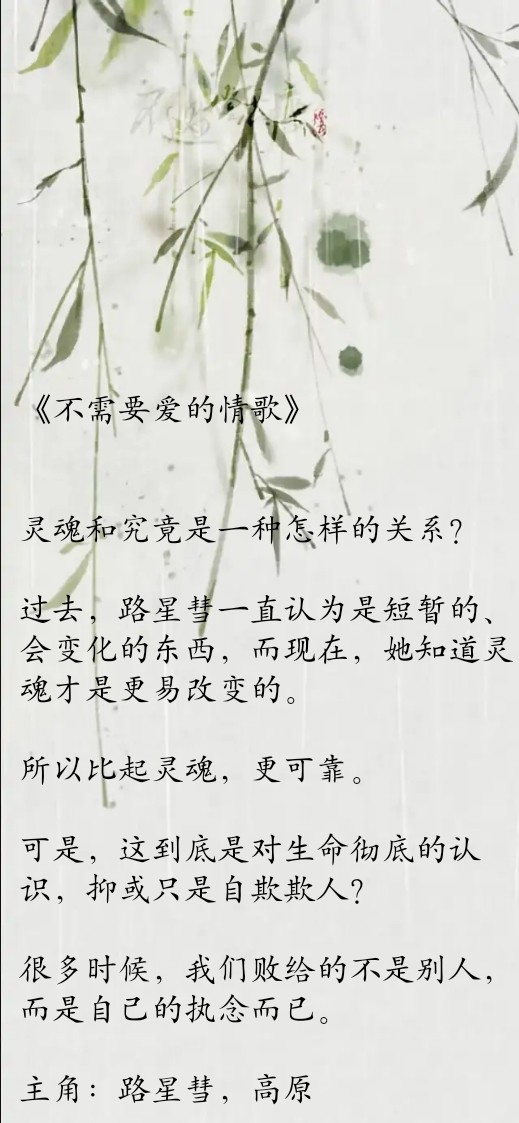 《不需要爱的情歌》
灵魂和究竟是一种怎样的关系?
过去，路星彗一直认为是短暂的、
会变化的东西，而现在，她知道灵
魂才是更易改变的。
所以比起灵魂，更可靠。
可是，这到底是对生命彻底的认
识，抑或只是自欺欺人?
很多时候，我们败给的不是别人，
而是自己的执念而已。
主角：路星彗，高原